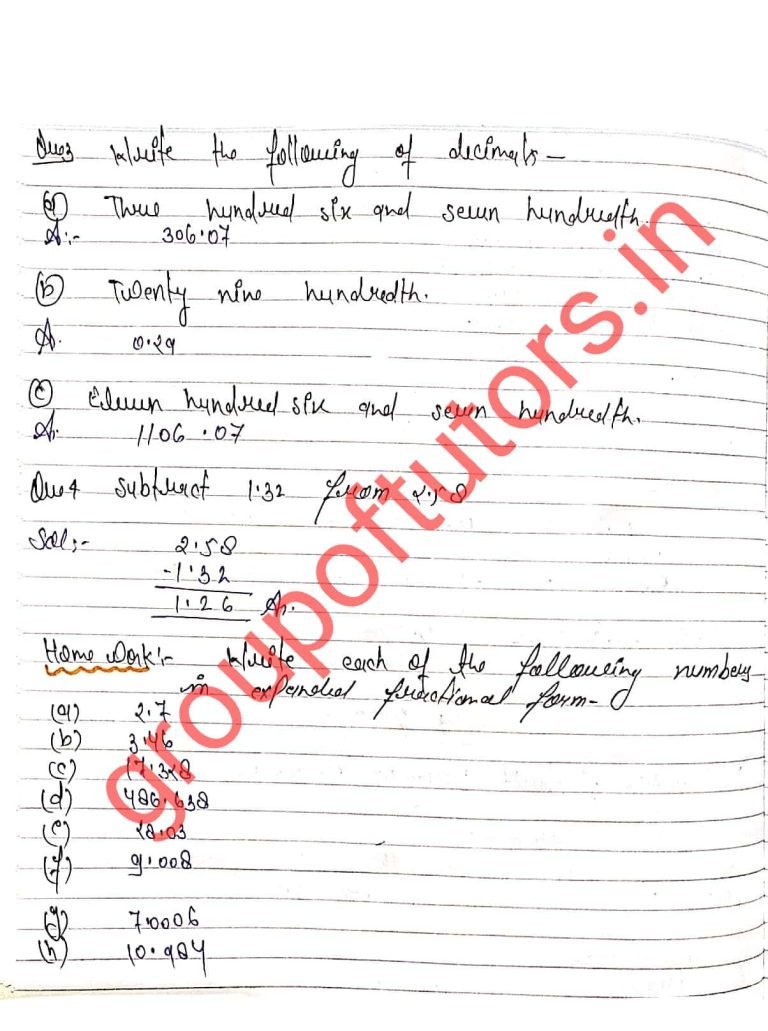 Que3 Write the following of decimals-
(a) Three hundred six and seven hundredth.
A:- 306.07
(b) Twenty nine hundredth.
A. 0.29
(c) Eleven hundred six and seven hundredth.
A. 1106.07
Que4 Subtract 1.32 from 2.58
Sol:- 2.58
-1.32
1.26 A.
Home Work:- Write each of the following numbers
in expanded fractional form-
(a) 2.7
(b) 3.46
(c) 17.328
(d) 486.638
(e) 28.03
(f) 9.008
(g) 7.0006
(h) 10.984
groupoftutors.in